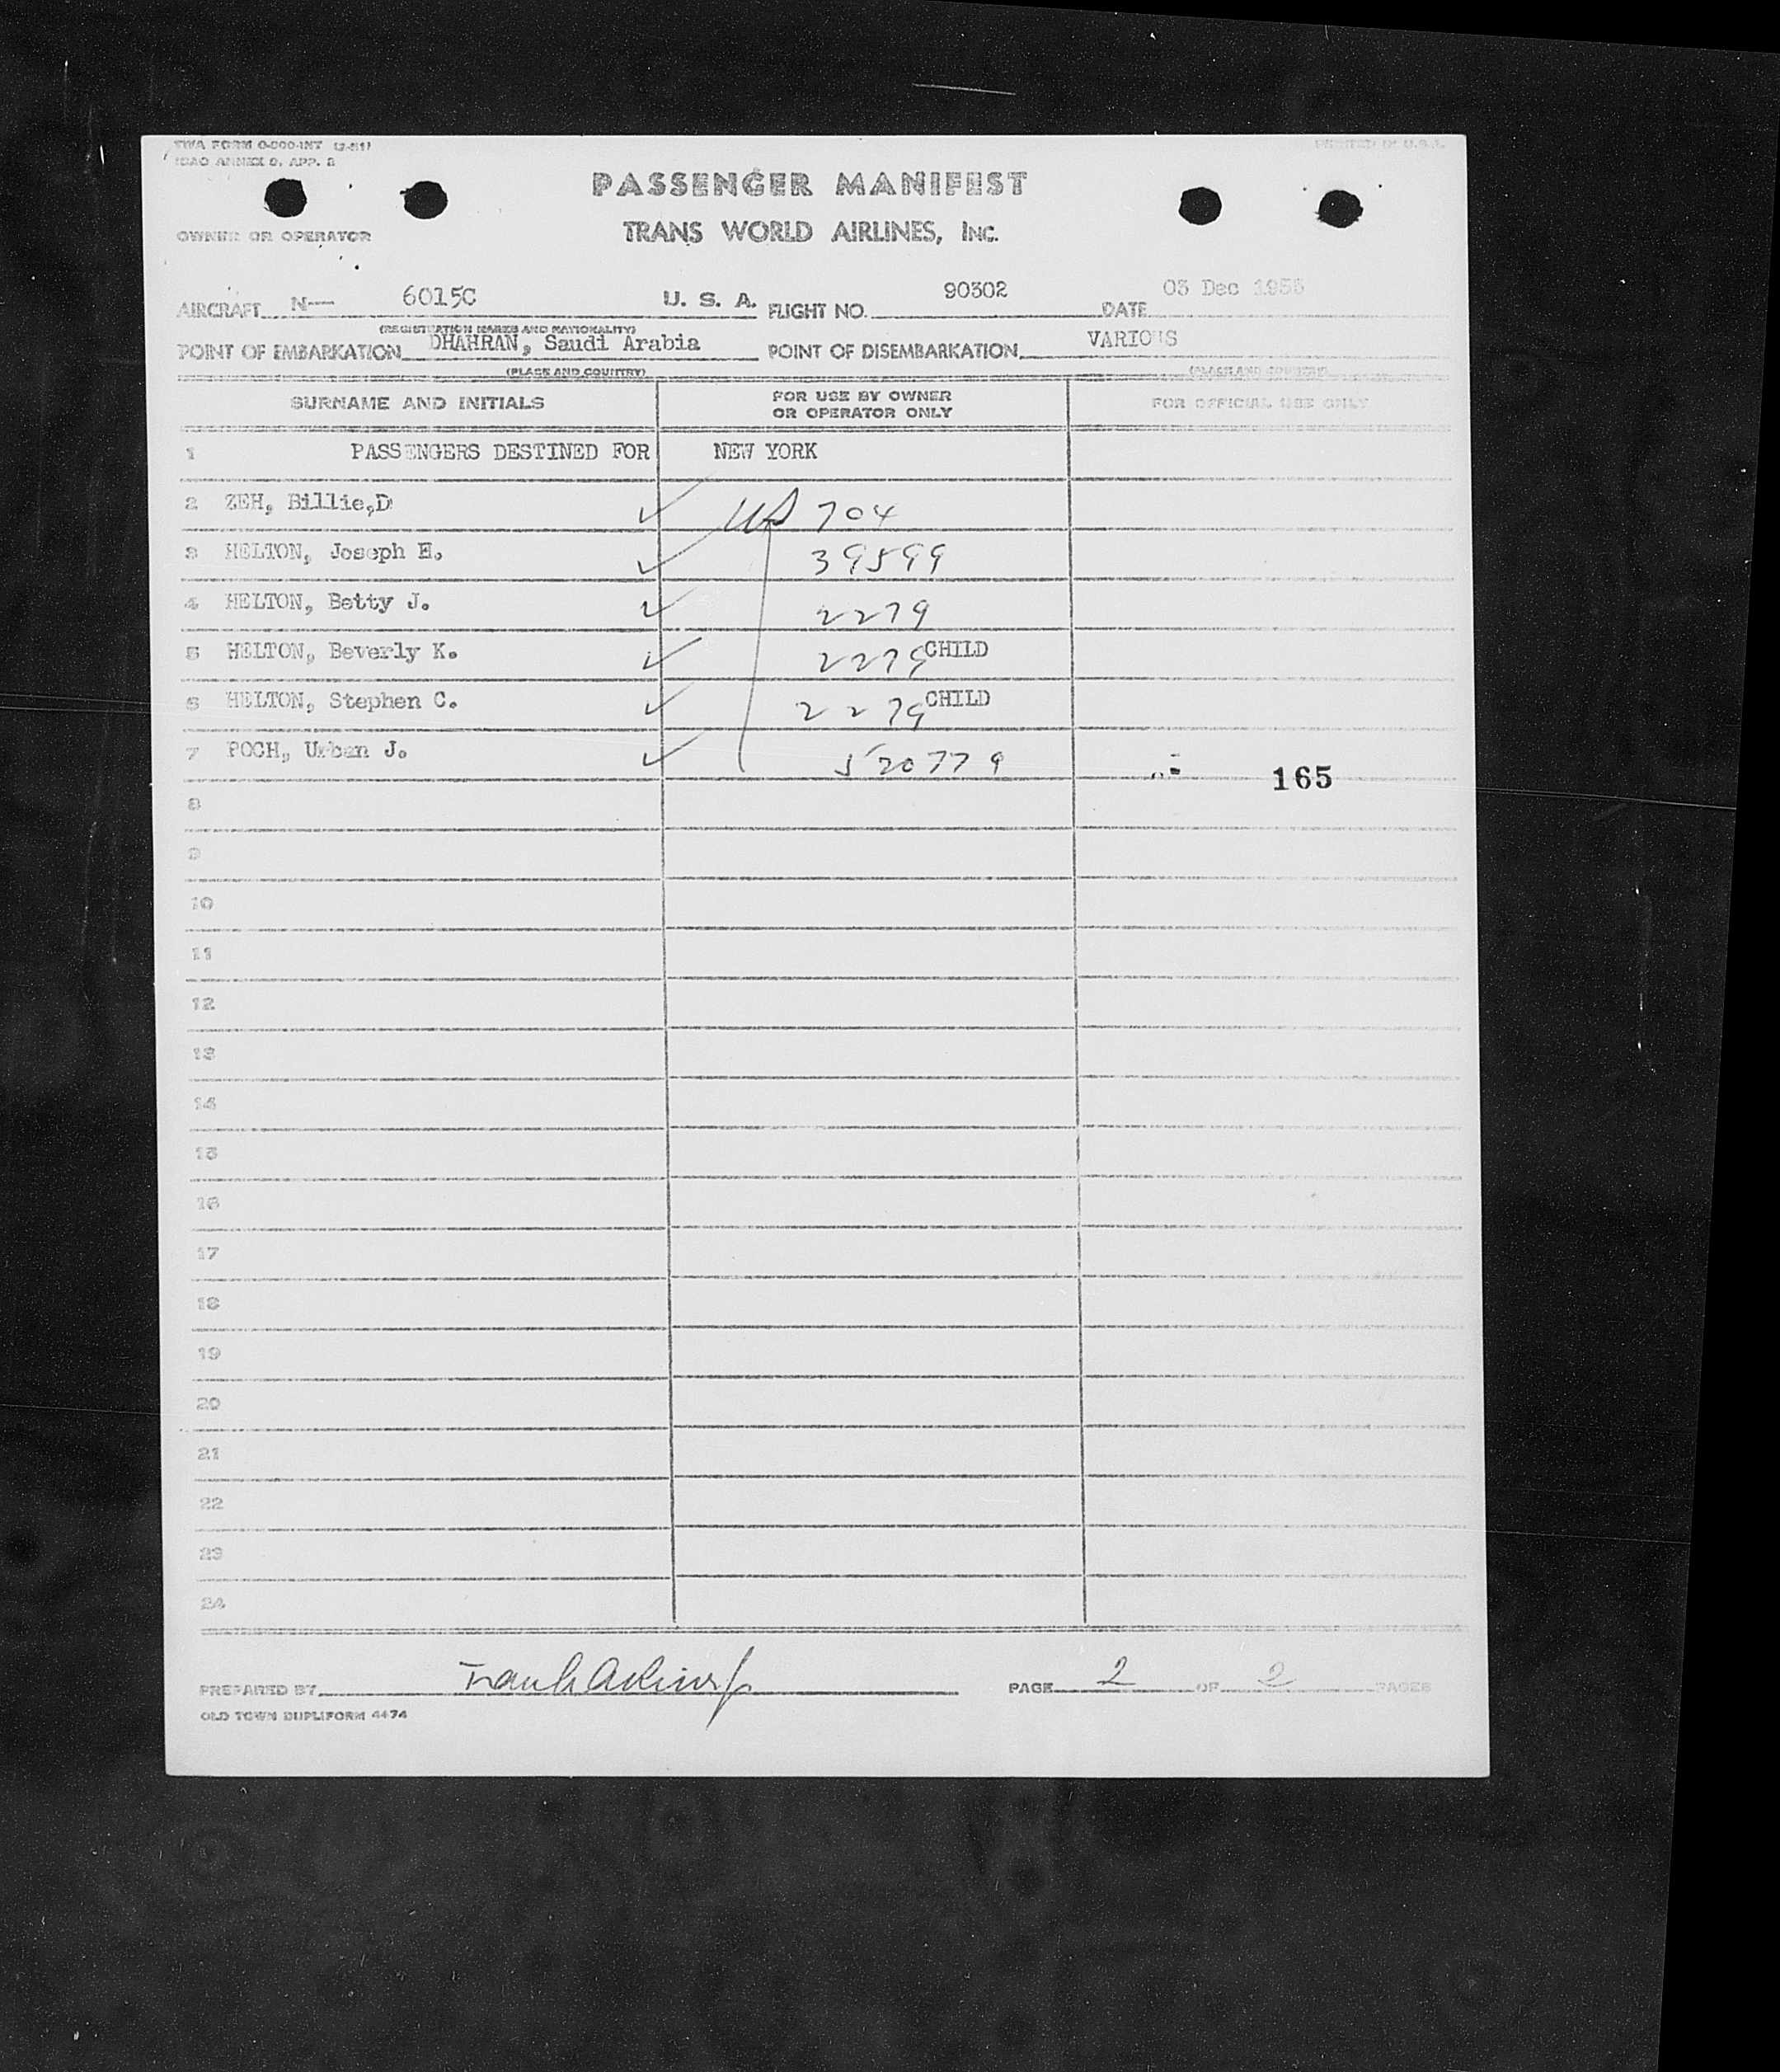 TWA FORM O-800-INT (2-51)
ICAO ANNEX 9, APP. 2
PRINTED IN U.S.A.
PASSENGER MANIFEST
OWNER OR OPERATOR
TRANS WORLD AIRLINES, INC.
AIRCRAFT N— 6015C U. S. A. FLIGHT NO. 90302 DATE 03 Dec 1955
(REGISTRATION MARKS AND NATIONALITY)
POINT OF EMBARKATION DHAHRAN, Saudi Arabia POINT OF DISEMBARKATION VARIOUS
(PLACE AND COUNTRY) (PLACE AND COUNTRY)
SURNAME AND INITIALS FOR USE BY OWNER OR OPERATOR ONLY FOR OFFICIAL USE ONLY
1 PASSENGERS DESTINED FOR NEW YORK
2 ZEH, Billie,D ✓ US 704
3 HELTON, Joseph E. ✓ 39599
4 HELTON, Betty J. ✓ 2279
5 HELTON, Beverly K. ✓ 2279 CHILD
6 HELTON, Stephen C. ✓ 2279 CHILD
7 POCH, Urban J. ✓ 520779
165
8
9
10
11
12
13
14
15
16
17
18
19
20
21
22
23
24
PREPARED BY PAGE 2 OF 2 PAGES
OLD TOWN DUPLIFORM 4474